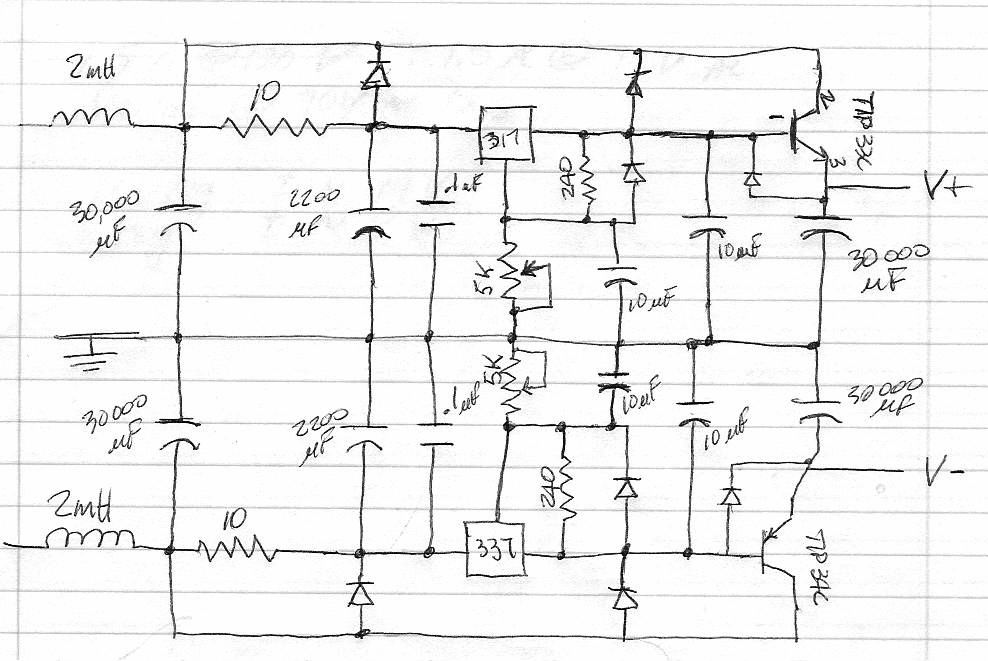 2mH
10
30,000
µF
2200
µF
.1µF
317
240
5K
10µF
10µF
1
2
3
TIP 33C
V+
30000
µF
30000
µF
2200
µF
.1µF
5K
10µF
10µF
30000
µF
V-
2mH
10
337
240
TIP 34C